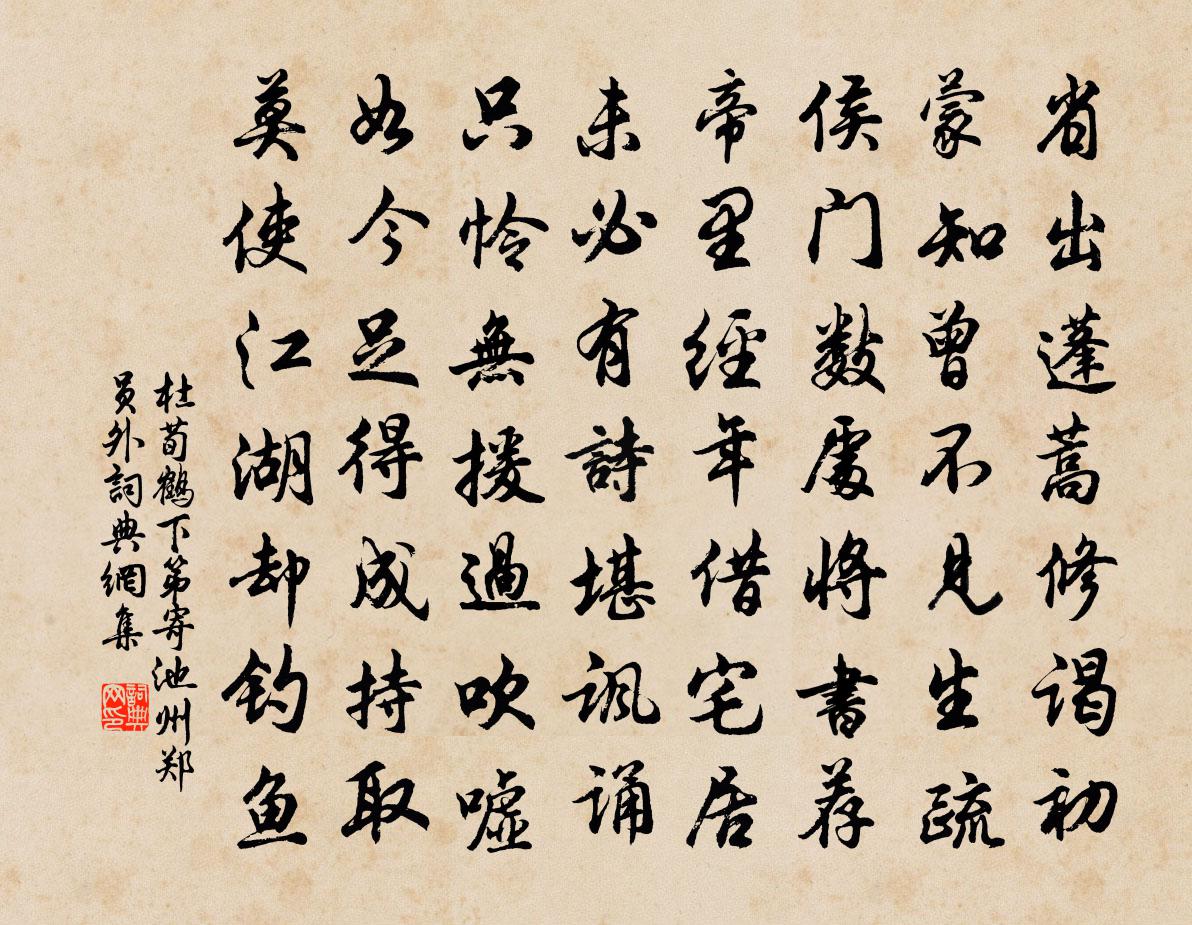 省出蓬蒿修谒初
蒙知曾不见生疏
侯门数處将書荐
帝里經年借宅居
未必有詩堪讽诵
只怜無援過吹嘘
如今足得成持取
莫使江湖却钓鱼
杜荀鶴下第寄池州郑
员外詞典網集
詞典网印